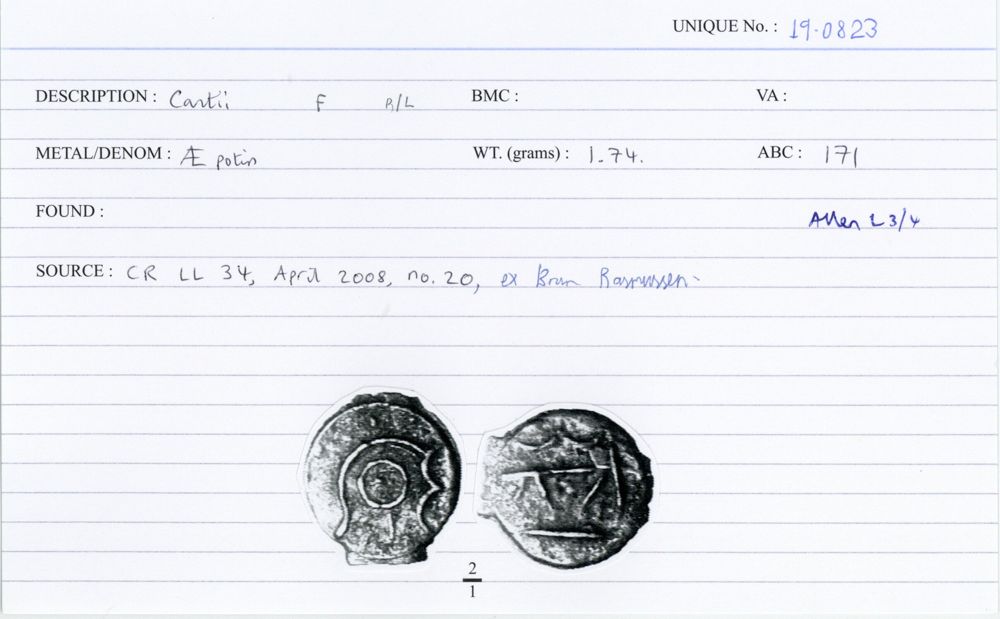 UNIQUE No. : 19-0823
DESCRIPTION : Cantii F R/L BMC : VA :
METAL/DENOM : Æ potin WT. (grams) : 1.74. ABC : 171
FOUND :
Allen L 3/4
SOURCE : CR LL 34, April 2008, no. 20, ex Brian Rasmussen.
2
1